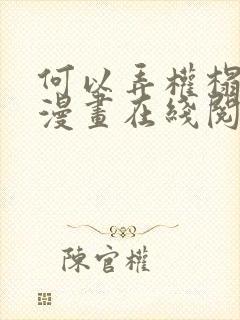 何以弄權榻
漫畫在綫閱
陳官權